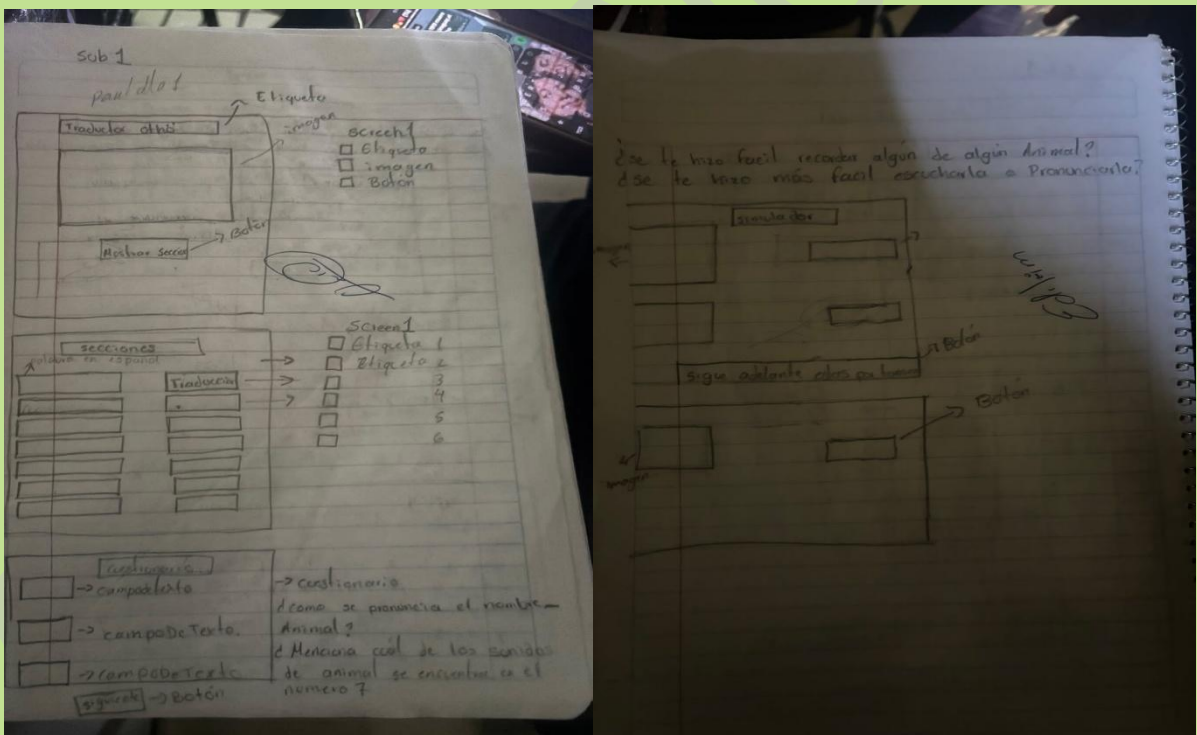 sub 1
Etiqueta
Traductor othó
imagen
screen1
Etiqueta
imagen
Botón
Botón
Mostrar Seccio
secciones
palabra en español
Traducción
Screen1
Etiqueta 1
Etiqueta 2
3
4
5
6
cuestionario
-> campodetexto
-> campoDeTexto.
-> campoDeTexto
siguiente -> Botón
-> cuestionario
¿como se pronuncia el nombre
Animal?
¿Menciona cuál de los sonidos
de animal se encuentra en el
numero 7
¿se te hizo facil recordar algún de algún Animal?
¿se te hizo más facil escucharla o Pronunciarla?
simulador
Botón
sigue adelante
Botón
imagen